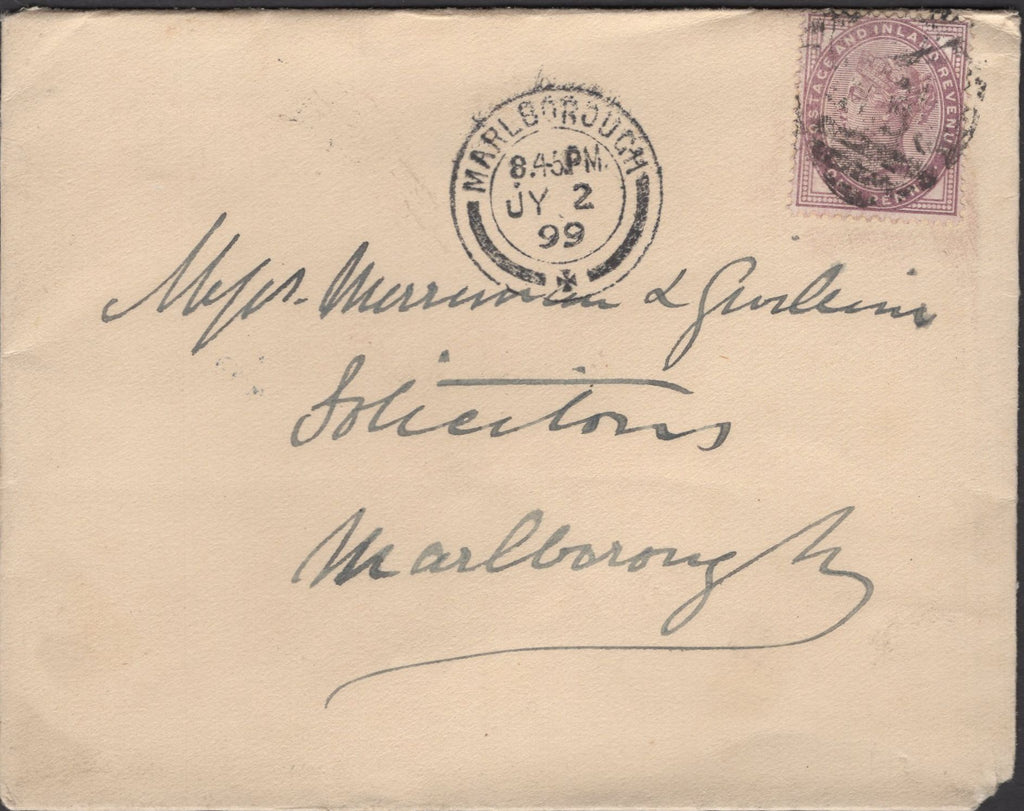 POSTAGE AND INLAND REVENUE
ONE PENNY
MARLBOROUGH
8.45PM
JY 2
99
Messrs. Merriman & Gwillim
Solicitors
Marlborough